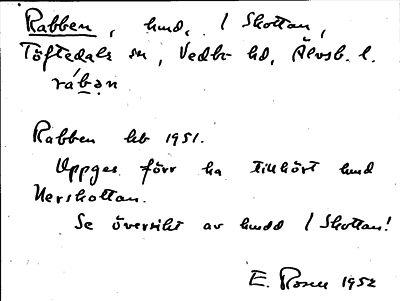 Rabben, hmd, i Skottan,
Töftedals sn, Vedbo hd, Älvsb. l.
rábən
Rabben hb 1951.
Uppges förr ha tillhört hmd
Nerskottan.
Se översikt av hmdd i Skottan!
E. Rosen 1952